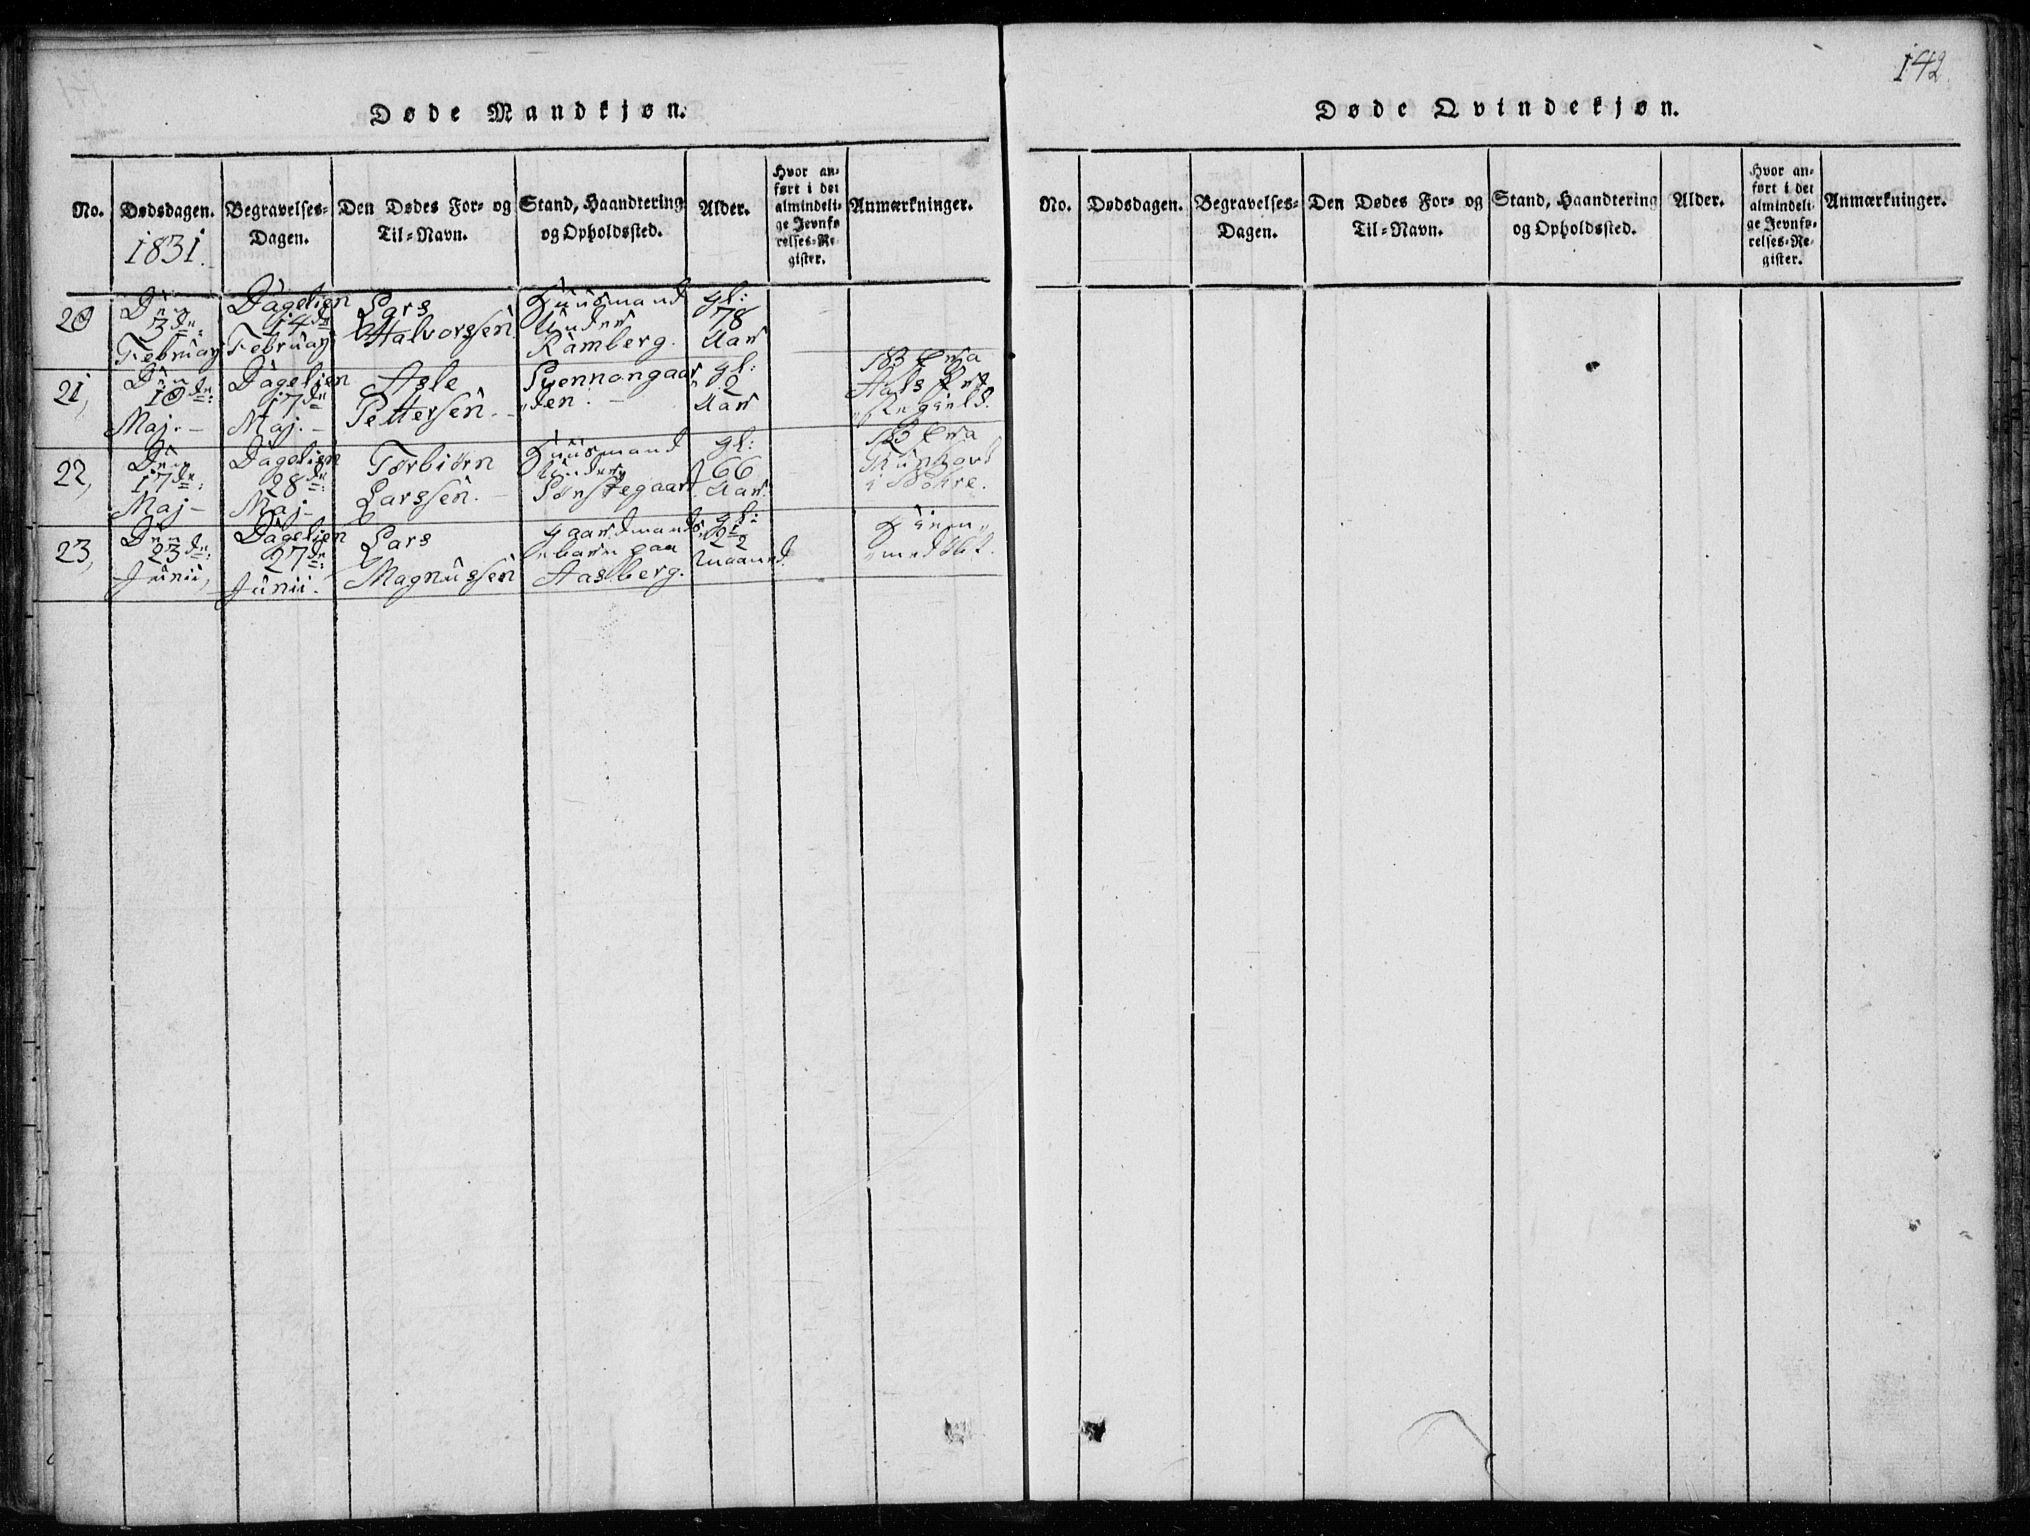 142.
Døde Mandkjøn.
No.
Dødsdagen.
1831.
Begravelses-
Dagen.
Den Dødes For- og
Til-Navn.
Stand, Haandtering
og Opholdssted.
Alder.
Hvor an-
ført i det
almindeli-
ge Jevnfø-
relses-Re-
gister.
Anmærkninger.
20
Den
3de:
Februar
Dagelien
14de
Februar
Lars
Halvorssen
Huusmand
Under
Ramberg.
gl:
78
Aar
21,
Den
10de:
Maj.-
Dagelien
17de
Maj.-
Asle
Pettersen.-
Svennongaar
„den.-
gl:
2
Aar
Fra
Aals Præ
„stegield.
22,
Den
17de:
Maj-
Dagelien
28de:
Maj-
Torbiørn
Larssen.-
Huusmand
Under
gl:
66
Aar.
Fra
23,
Den
23de:
Junii,
Dagelien
27de:
Junii.
Lars
Magnussen
Gaardmands
„barn paa
Aasberg.
gl:
Maaned.
Hiem„
„medøbt.
Døde Qvindekjøn.
No.
Dødsdagen.
Begravelses-
Dagen.
Den Dødes For- og
Til-Navn.
Stand, Haandtering
og Opholdssted.
Alder.
Hvor an-
ført i det
almindeli-
ge Jevnfø-
relses-Re-
gister.
Anmærkninger.